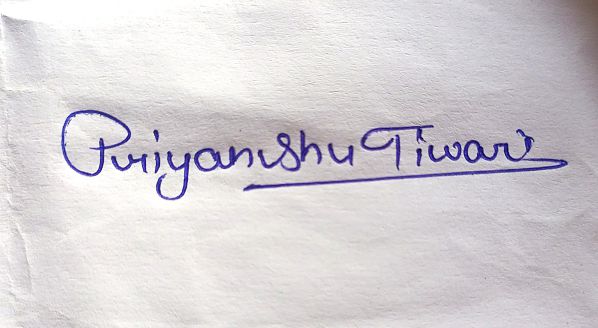 Priyanshu Tiwari